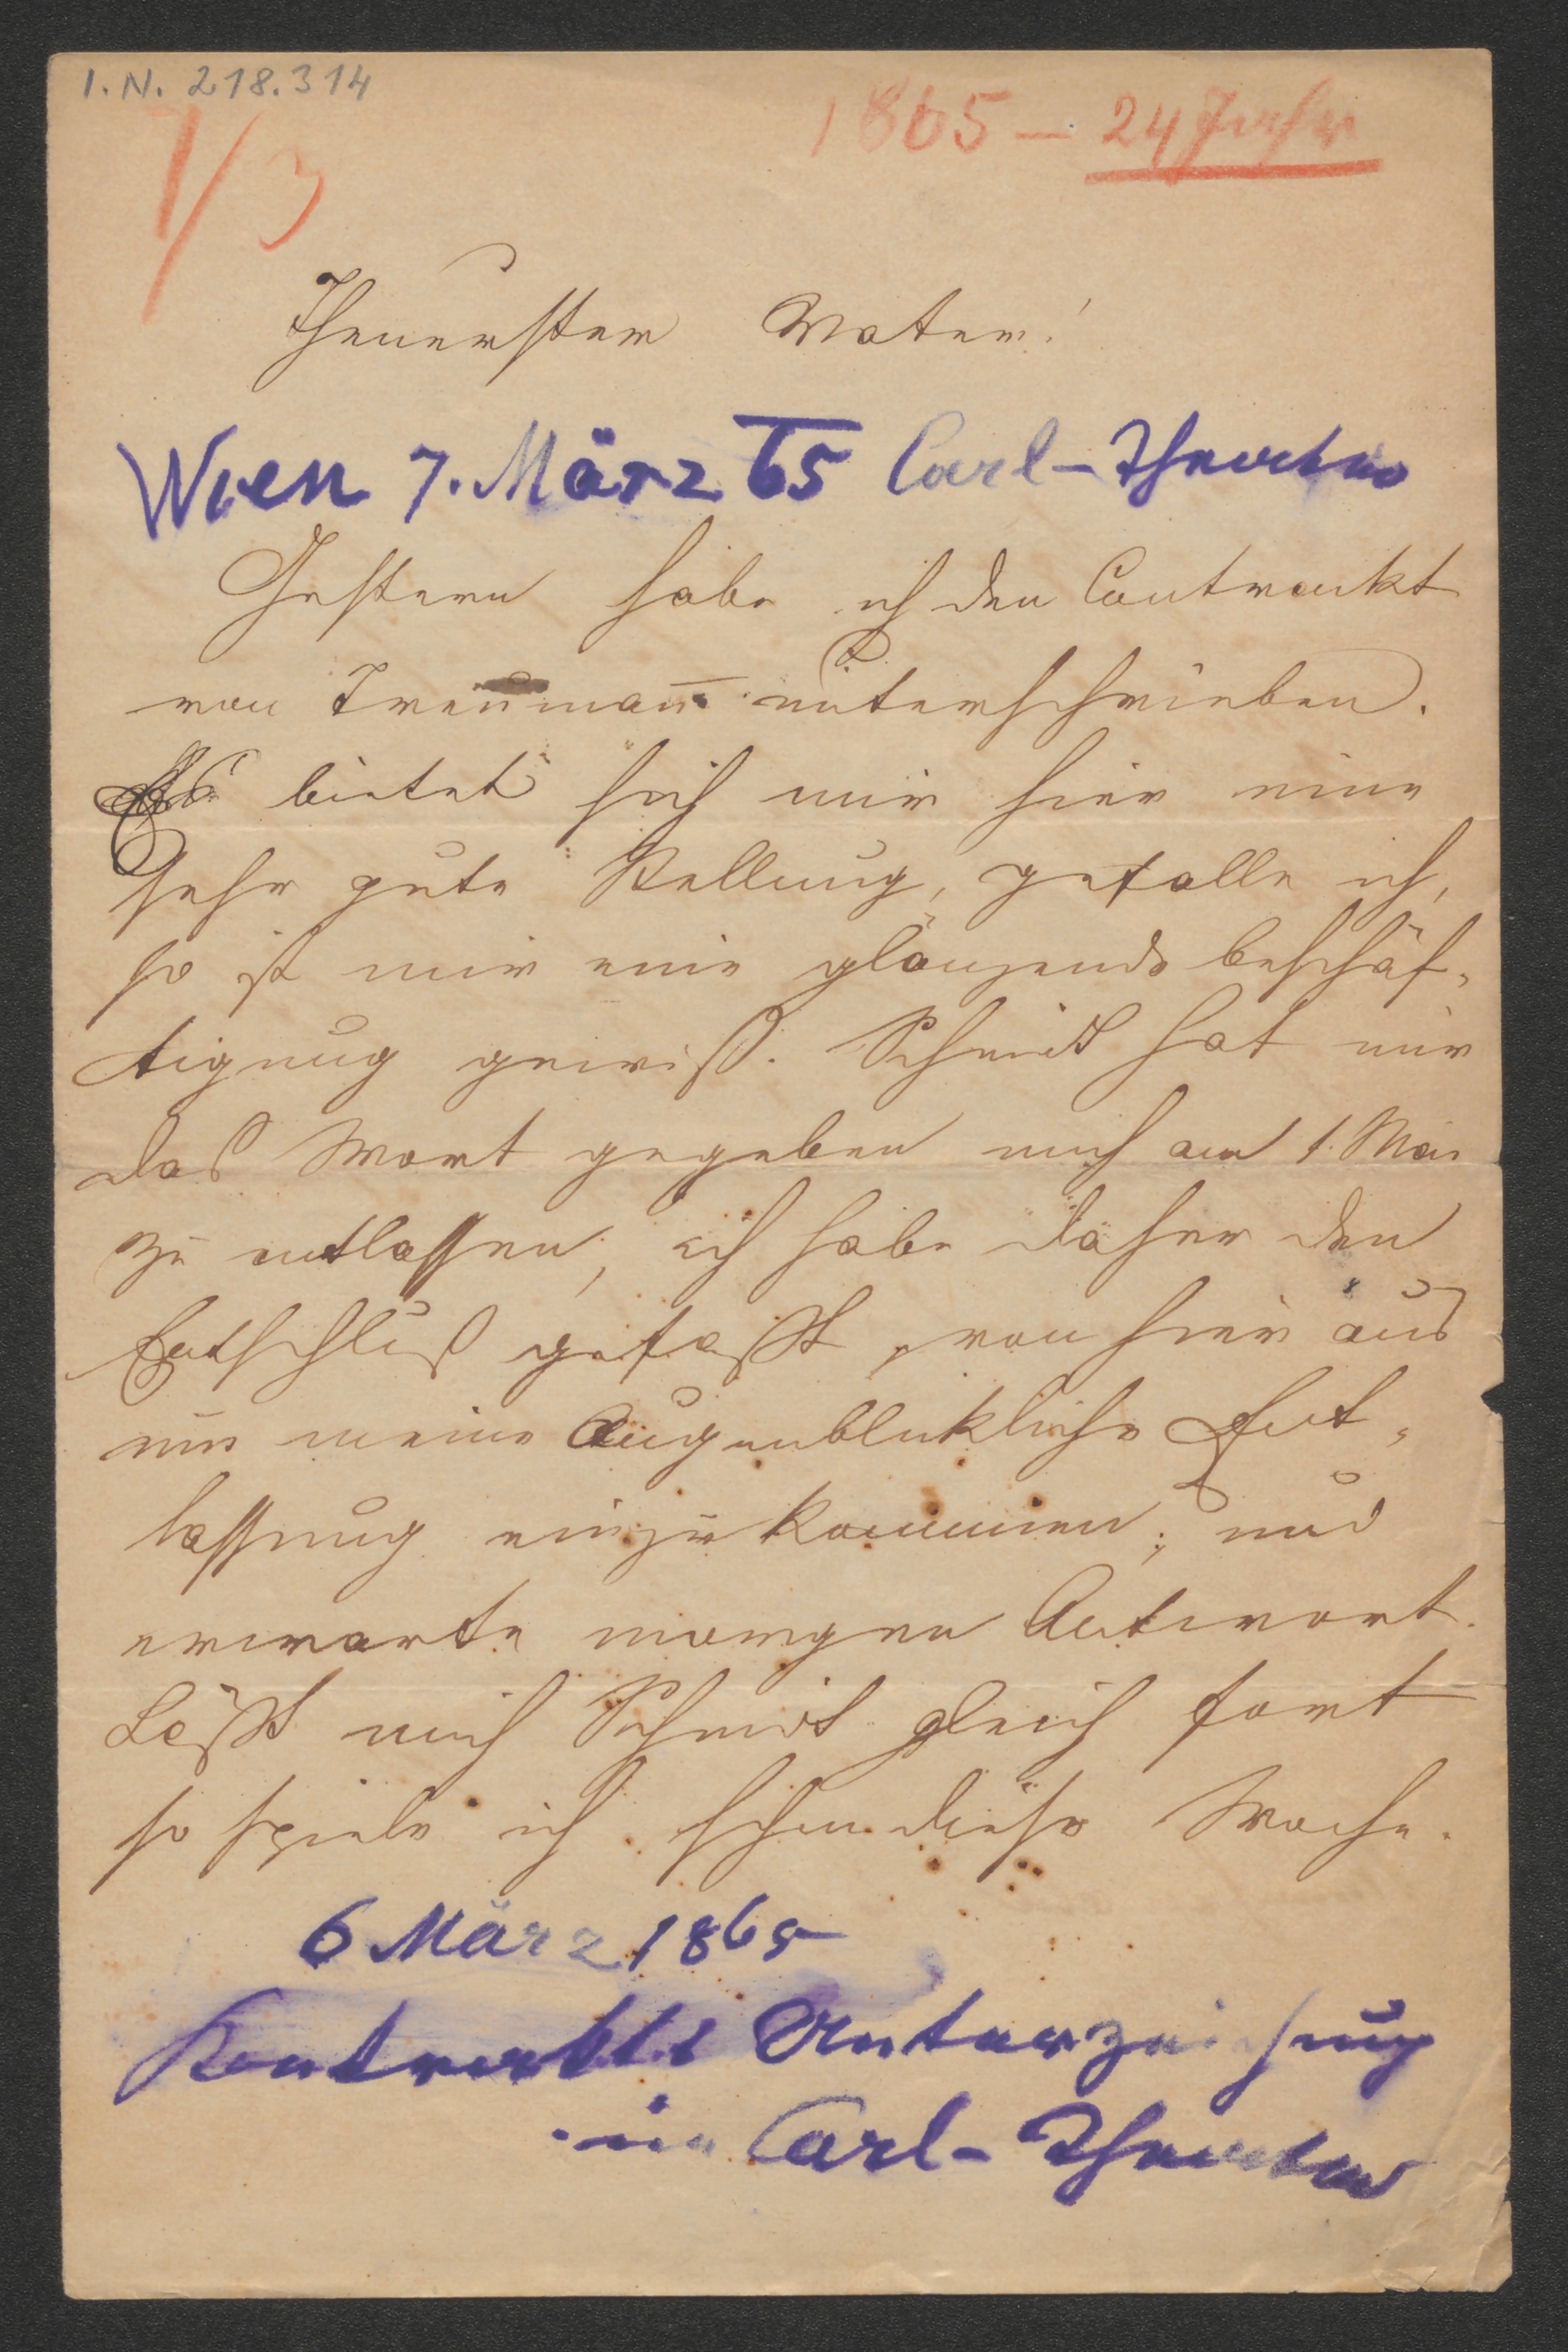 I. N. 218.314
1/3
1865 — 24 Jahr
Theuerster Vater!
Wien 7. März 65 Carl-Theater
Gestern habe ich den Contrakt
von Treumann unterschrieben.
Es bietet sich mir hier eine
sehr gute Stellung, gefalle ich,
so ist mir eine glänzende Beschäf-
tigung gewiß. Schmidt hat mir
das Wort gegeben mich am 1. Mai
zu entlassen, ich habe daher den
Entschluß gefaßt, von hier aus
um meine Augenblickliche Ent-
lassung einzukommen; und
erwarte morgen Antwort.
Läßt mich Schmidt gleich fort
so spiele ich schon diese Woche.
6 März 1865
Kontrakts Unterzeichnung
im Carl-Theater